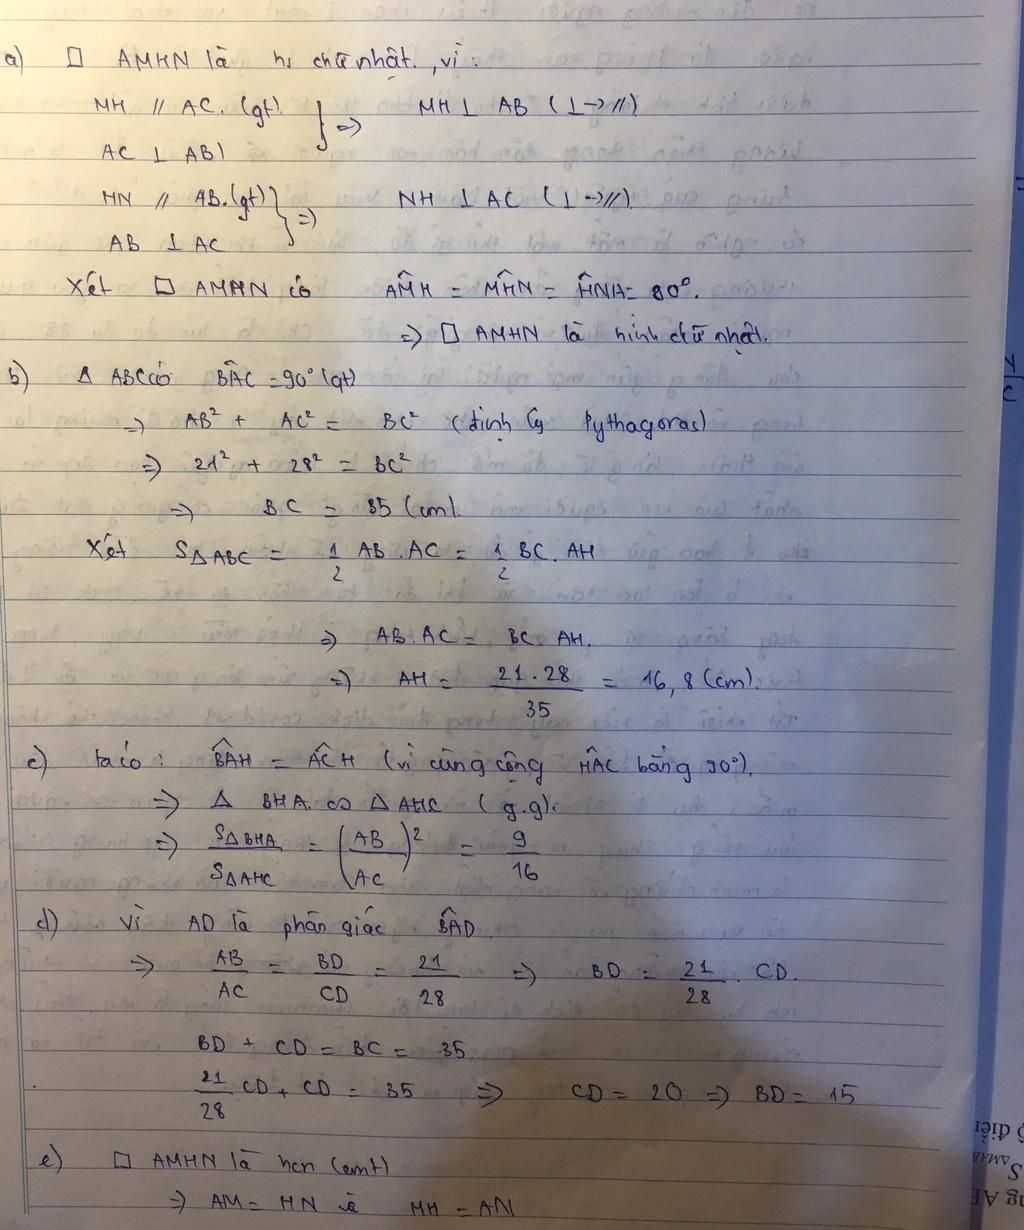 a) □ AMHN là h. chữ nhật. , vì :
MH // AC. (gt) } => MH ⊥ AB (⊥->//)
AC ⊥ AB)
HN // AB.(gt) } => NH ⊥ AC (⊥->//).
AB ⊥ AC
Xét □ AMHN có AM̂H = MĤN = ĤNA = 90°.
=> □ AMHN là hình chữ nhật.
b) Δ ABC có BÂC = 90° (gt)
=> AB² + AC² = BC² (định lý Pythagoras)
=> 21² + 28² = BC²
=> BC = 35 (cm).
Xét SΔABC = 1/2 AB . AC = 1/2 BC . AH
=> AB . AC = BC . AH.
=> AH = 21 . 28 / 35 = 16,8 (cm).
c) ta có : BÂH = AĈH (vì cùng cộng HÂC bằng 90°).
=> Δ BHA ∽ Δ AHC (g.g).
=> SΔBHA / SΔAHC = (AB/AC)² = 9/16
d) vì AD là phân giác BÂD.
=> AB/AC = BD/CD = 21/28 => BD = 21/28 . CD.
BD + CD = BC = 35
21/28 CD + CD = 35 => CD = 20 => BD = 15
e) □ AMHN là hcn (cmt)
=> AM = HN è MH = AN
ố điểm
S ΔMAB
ng AB
N
C